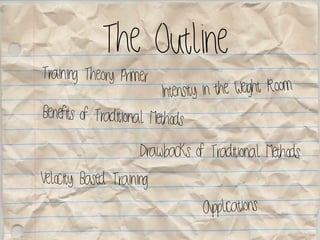 The Outline
Training Theory Primer
Intensity in the Weight Room
Benefits of Traditional Methods
Drawbacks of Traditional Methods
Velocity Based Training
Applications